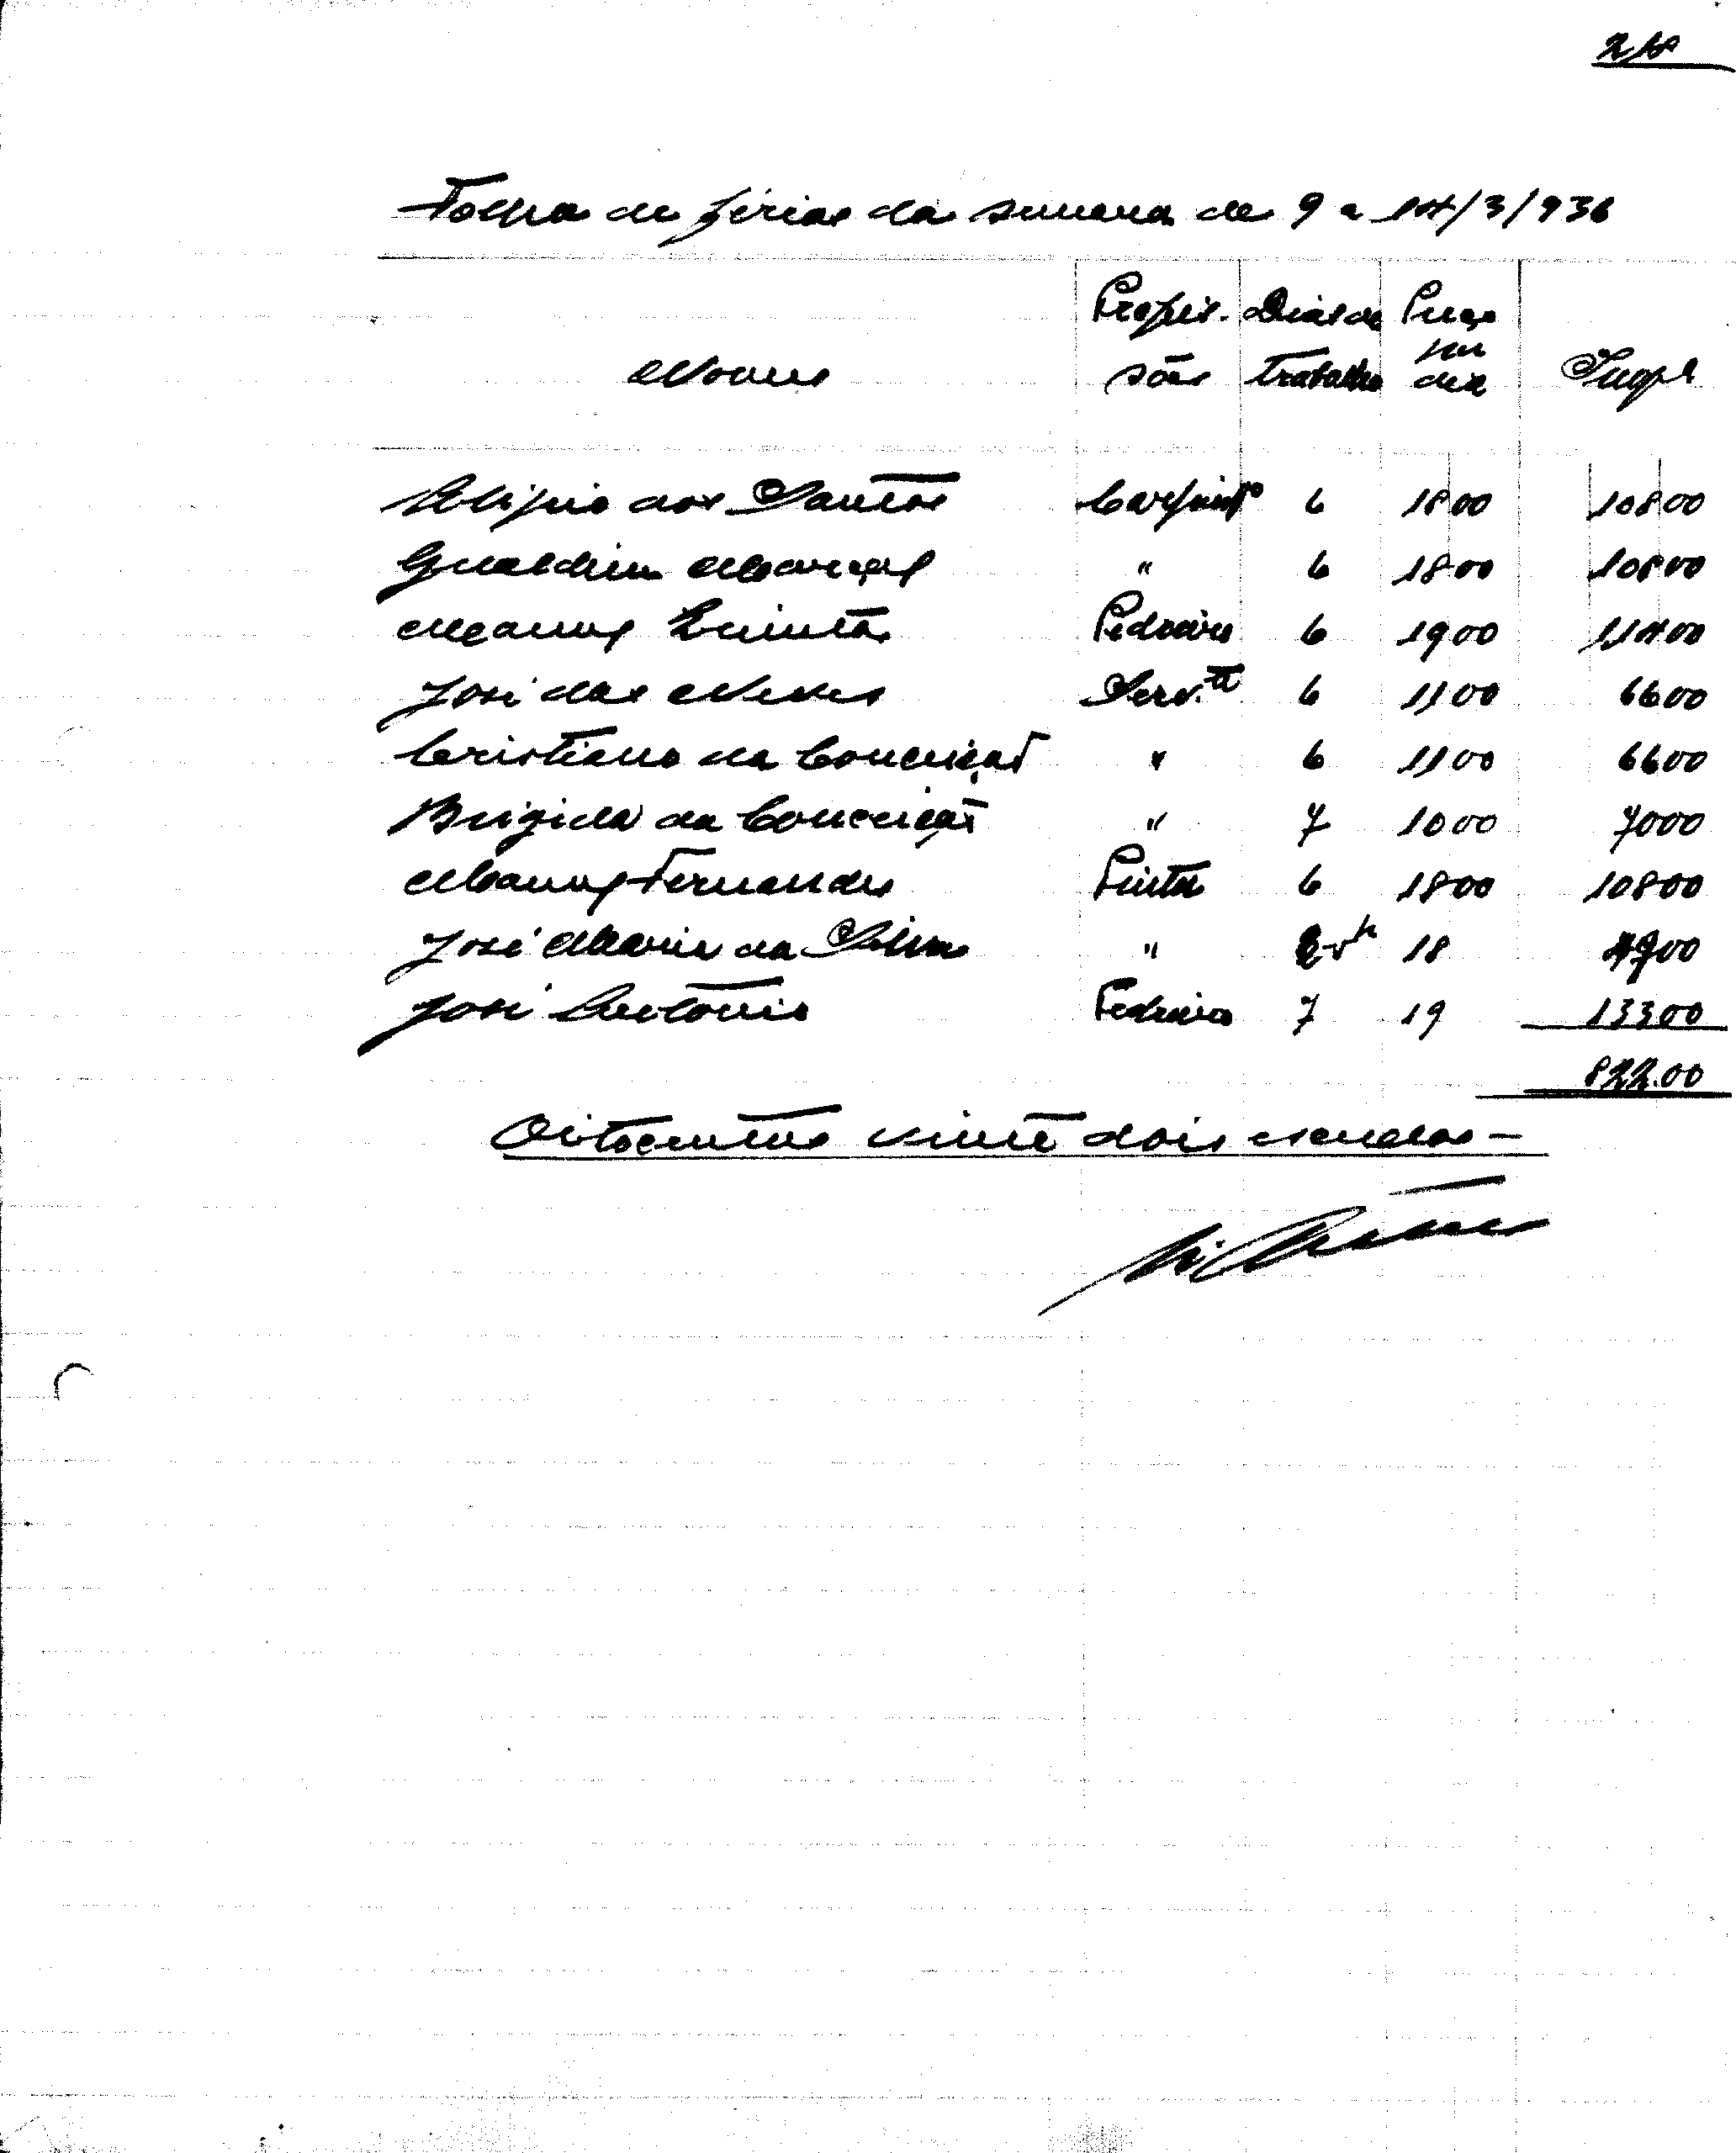 Folha de férias da semana de 9 a 14/3/936
Profis- Dias de Preço
por
Nomes sões trabalho dia Impt
Elipio dos Santos Carpintro 6 1800 10800
Gualdim Marçal " 6 1800 10800
Manuel Quintas Pedreiro 6 1900 11400
José das Neves Serv.te 6 1100 6600
Cristiano da Conceição " 6 1100 6600
Brigida da Conceição " 7 1000 7000
Manuel Fernandes Pintor 6 1800 10800
José Maria da Silva " 18 4900
José Antonio Pedreiro 7 19 13300
822.00
Oitocentos vinte dois escudos —